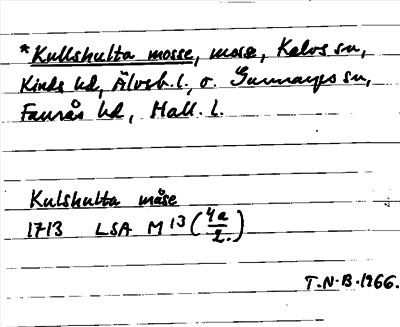 *Kullshulta mosse, mosse, Kalvs sn,
Kinds hd, Älvsb. l., o. Gunnarps sn,
Faurås hd, Hall. l.
Kulshulta måse
1713 LSA M 13 (4a/2.)
T.N.B. 1966.